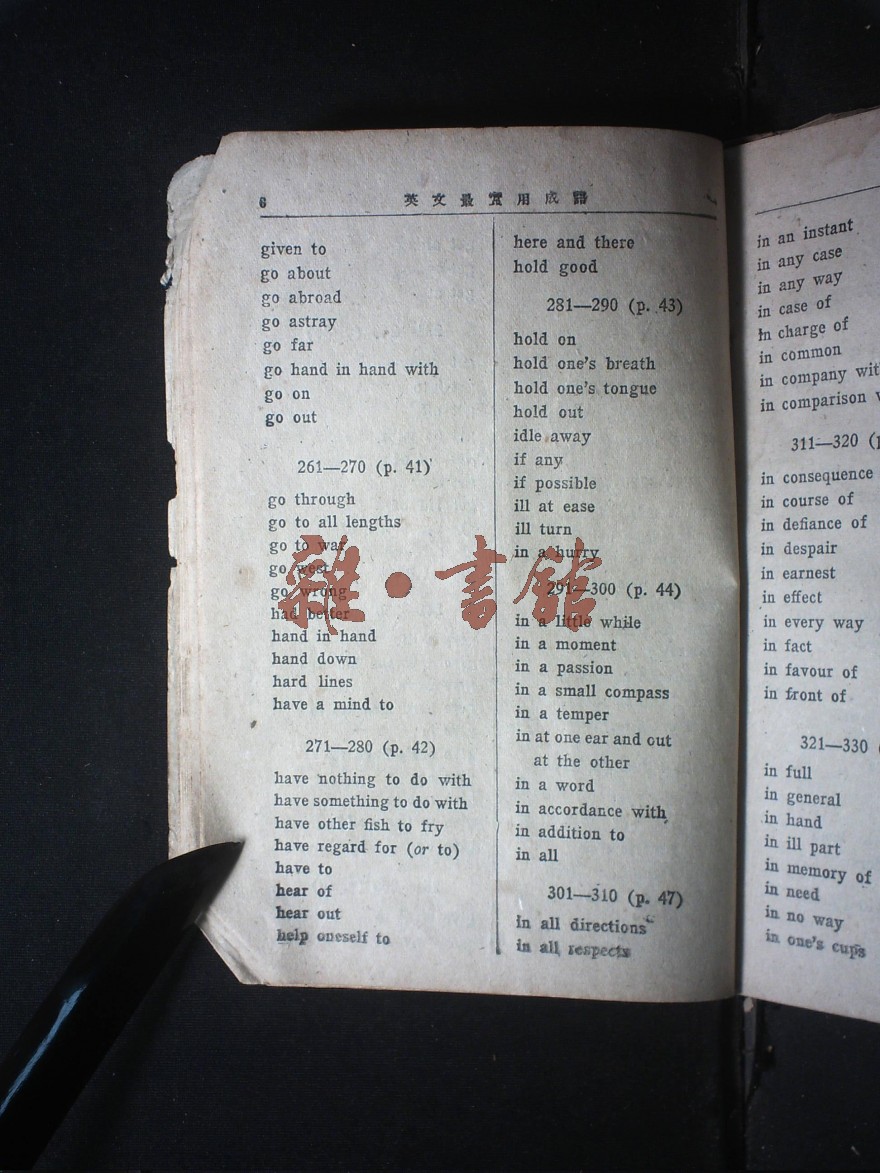 6
英文最實用成語
given to
go about
go abroad
go astray
go far
go hand in hand with
go on
go out
261—270 (p. 41)
go through
go to all lengths
go to war
go west
go wrong
had better
hand in hand
hand down
hard lines
have a mind to
271—280 (p. 42)
have nothing to do with
have something to do with
have other fish to fry
have regard for (or to)
have to
hear of
hear out
help oneself to
here and there
hold good
281—290 (p. 43)
hold on
hold one's breath
hold one's tongue
hold out
idle away
if any
if possible
ill at ease
ill turn
in a hurry
291—300 (p. 44)
in a little while
in a moment
in a passion
in a small compass
in a temper
in at one ear and out
at the other
in a word
in accordance with
in addition to
in all
301—310 (p. 47)
in all directions
in all respects
in an instant
in any case
in any way
in case of
in charge of
in common
in company
in comparison
311—320
in consequence
in course of
in defiance of
in despair
in earnest
in effect
in every way
in fact
in favour of
in front of
321—330
in full
in general
in hand
in ill part
in memory of
in need
in no way
in one's cups
雜·書館